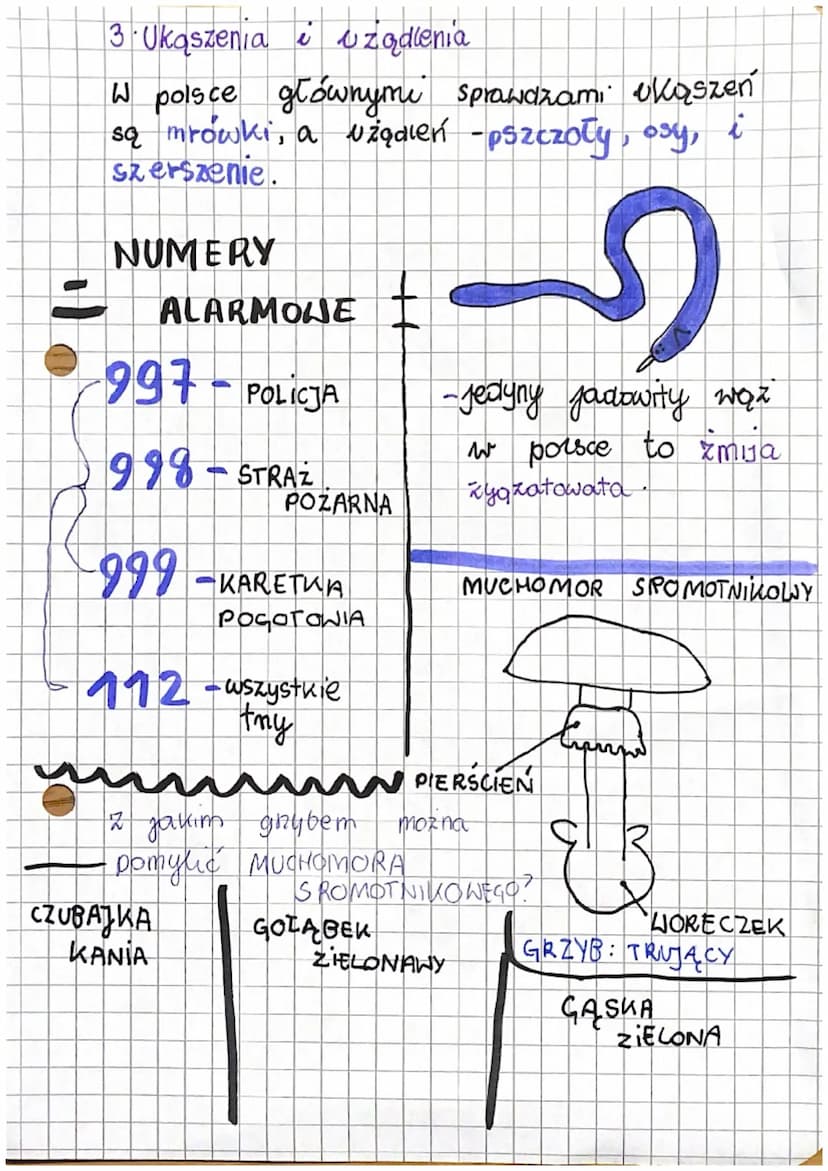 3. Ukąszenia i użądlenia
W polsce głównymi sprawdzami ukąszeń
są mrówki, a użądleń - pszczoły, osy, i
szerszenie.
NUMERY
ALARMOWE
997 - POLICJA
998 - STRAŻ
POŻARNA
999 - KARETKA
POGOTOWIA
112 - wszystkie
tny
- jedyny jadowity wąż
w polsce to żmija
zygzatowata.
MUCHOMOR SPOMOTNIKOWY
PIERŚCIEŃ
WORECZEK
GRZYB: TRUJĄCY
Z jakim grzybem można
pomylić MUCHOMORA
SROMOTNIKOWEGO?
CZUBAJKA
KANIA
GOŁĄBEK
ZIELONAWY
GĄSKA
ZIELONA